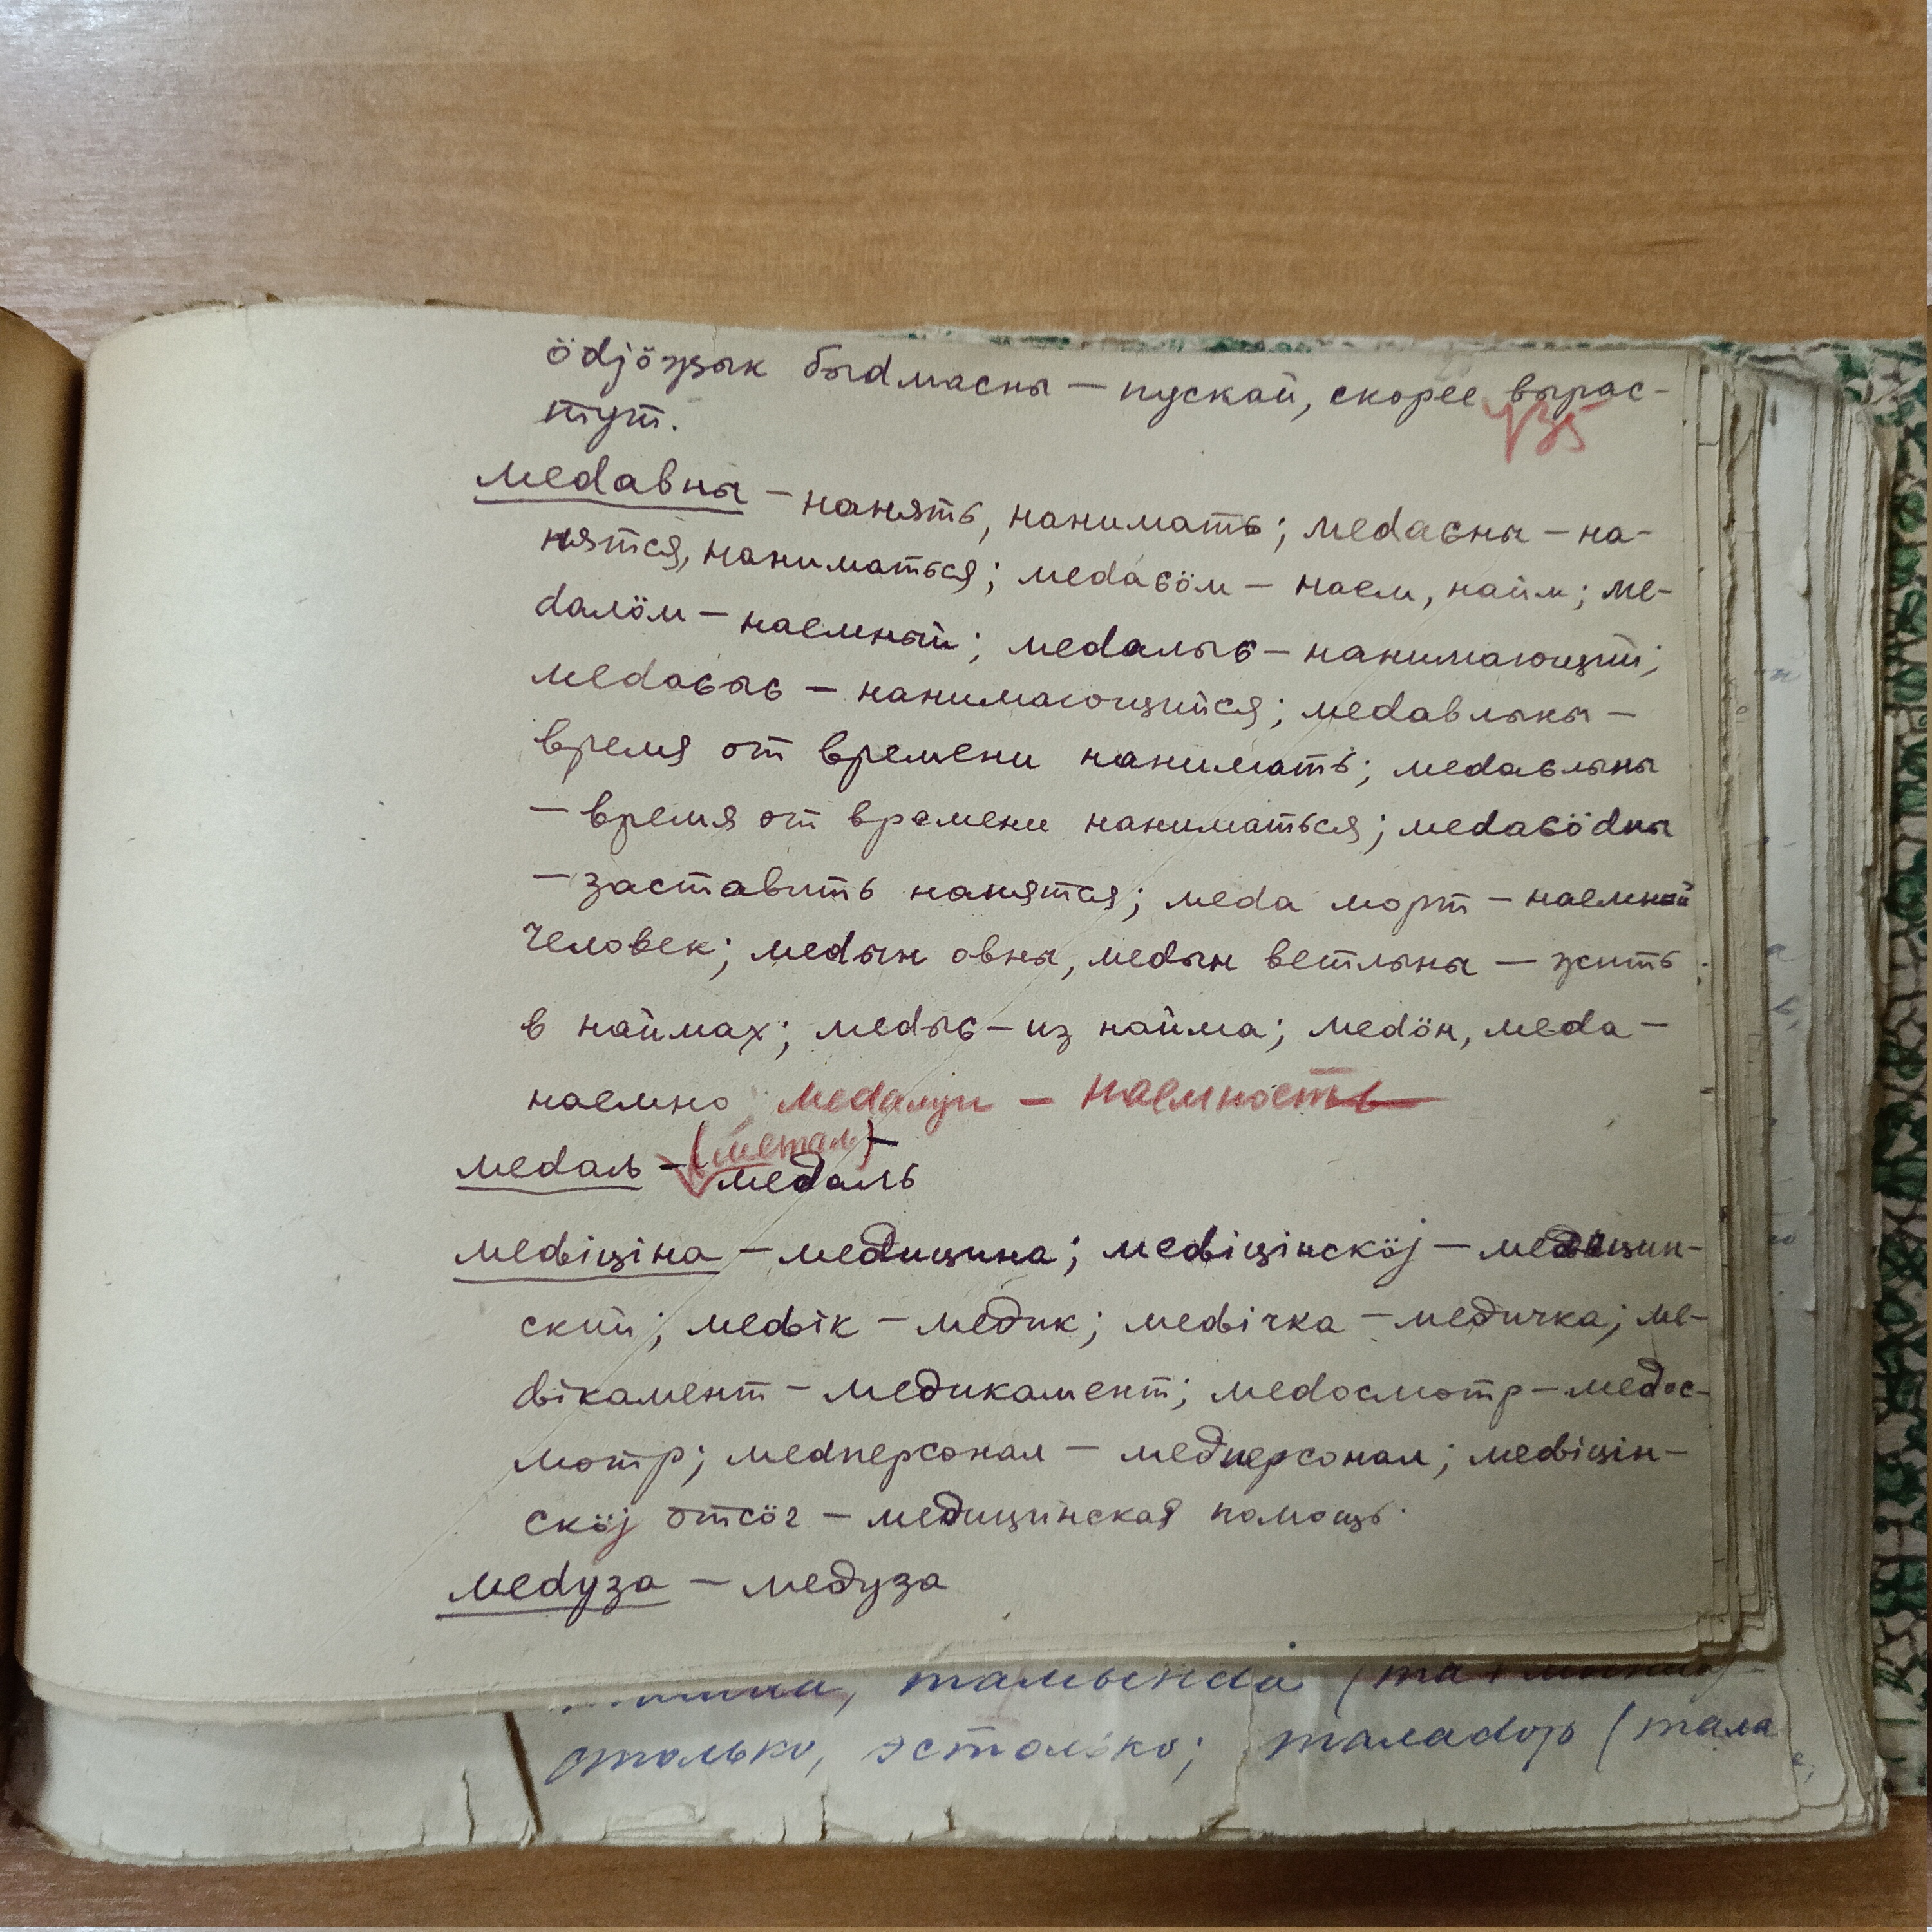 ӧԁјӧҗык быԁмасны — пускай, скорее вырас-
тут.
меԁавны – нанять, нанимать; меԁаԍны – на-
нятся, наниматься; меԁаԍӧм – наем, найм; ме-
ԁалӧм – наемный; меԁалыԍ – нанимающий;
меԁаԍыԍ – нанимающийся; меԁавлыны –
время от времени нанимать; меԁаԍлыны
– время от времени наниматься; меԁаԍӧԁны
– заставить нанятся; меԁа морт – наемной
человек; меԁын овны, меԁын ветлыны – жить
в наймах; меԁыԍ – из найма; меԁӧн, меԁа –
наемно; меԁалун – наемность
(метал) –
меԁаԉ – медаль
меԃіціна – медицина; меԃіцінскӧј – медицин-
ский; меԃік – медик; меԃічка – медичка; ме-
ԃікамент – медикамент; меԁосмотр – медос-
мотр; меԁперсонал – медперсонал; меԃіцін-
скӧј отсӧг – медицинская помощь.
меԁуза – медуза
столько, эстолько;